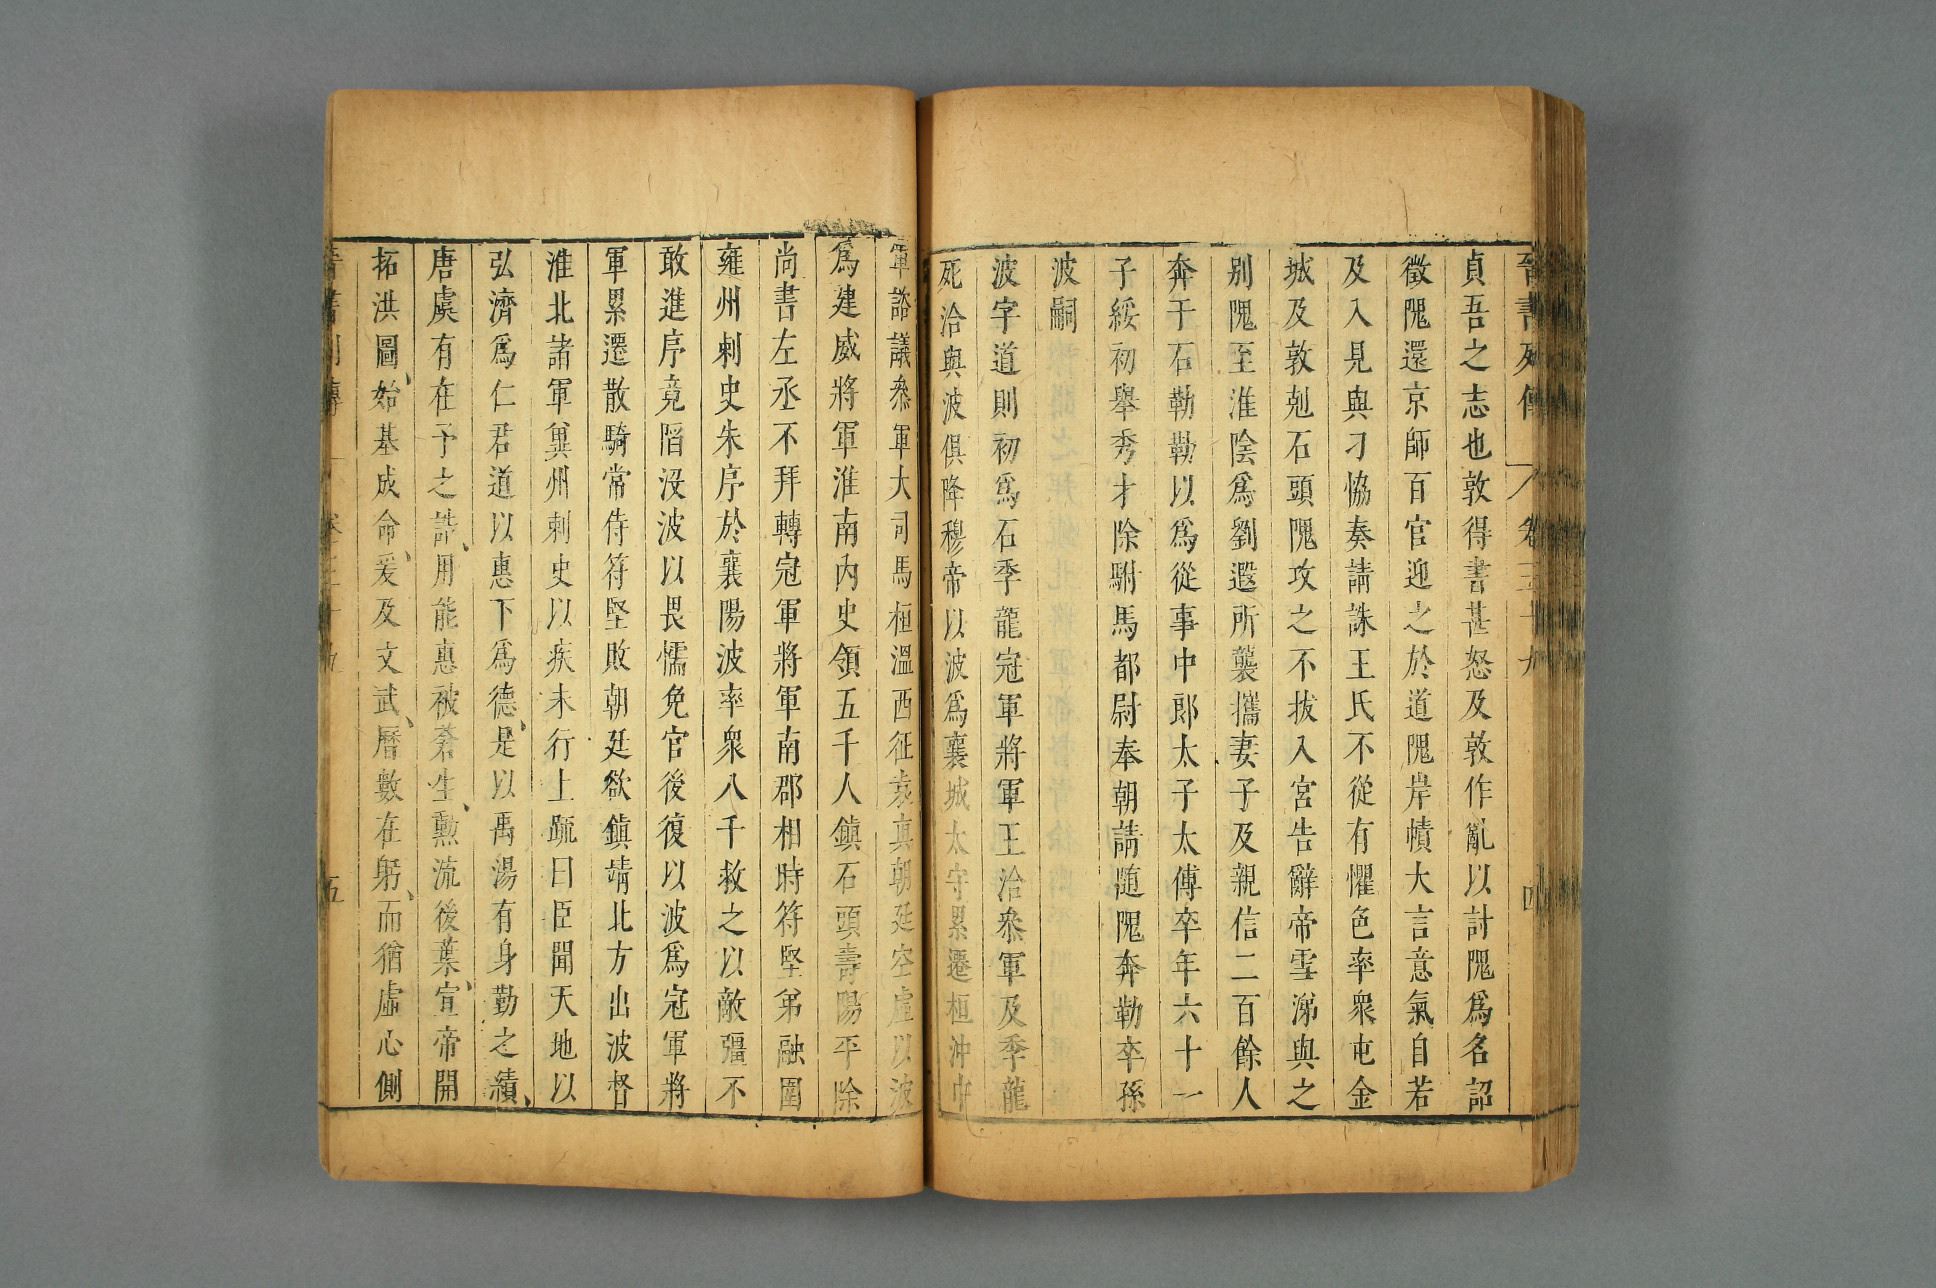 晉書列傳 卷三十九 四
貞吾之志也敦得書甚怒及敦作亂以討隗爲名詔
徵隗還京師百官迎之於道隗岸幘大言意氣自若
及入見與刁協奏請誅王氏不從有懼色率衆屯金
城及敦剋石頭隗攻之不拔入宮告辭帝雪涕與之
别隗至淮陰爲劉遐所襲攜妻子及親信二百餘人
奔于石勒勒以爲從事中郎太子太傅卒年六十一
子綏初舉秀才除駙馬都尉奉朝請隨隗奔勒卒孫
波嗣
波字道則初爲石季龍冠軍將軍王洽叅軍及季龍
死洽與波俱降穆帝以波爲襄城太守累遷桓沖中
軍諮議叅軍大司馬桓溫西征袁真朝廷空虛以波
爲建威將軍淮南内史領五千人鎮石頭壽陽平除
尚書左丞不拜轉冠軍將軍南郡相時符堅弟融圍
雍州刺史朱序於襄陽波率衆八千救之以敵彊不
敢進序竟陷没波以畏懦免官後復以波爲冠軍將
軍累遷散騎常侍符堅敗朝廷欲鎮靖北方出波督
淮北諸軍兾州刺史以疾未行上疏曰臣聞天地以
弘濟爲仁君道以惠下爲德是以禹湯有身勤之績
唐虞有在予之誥用能惠被蒼生勲流後葉宣帝開
拓洪圖始基成命爰及文武曆數在躬而猶虛心側
五